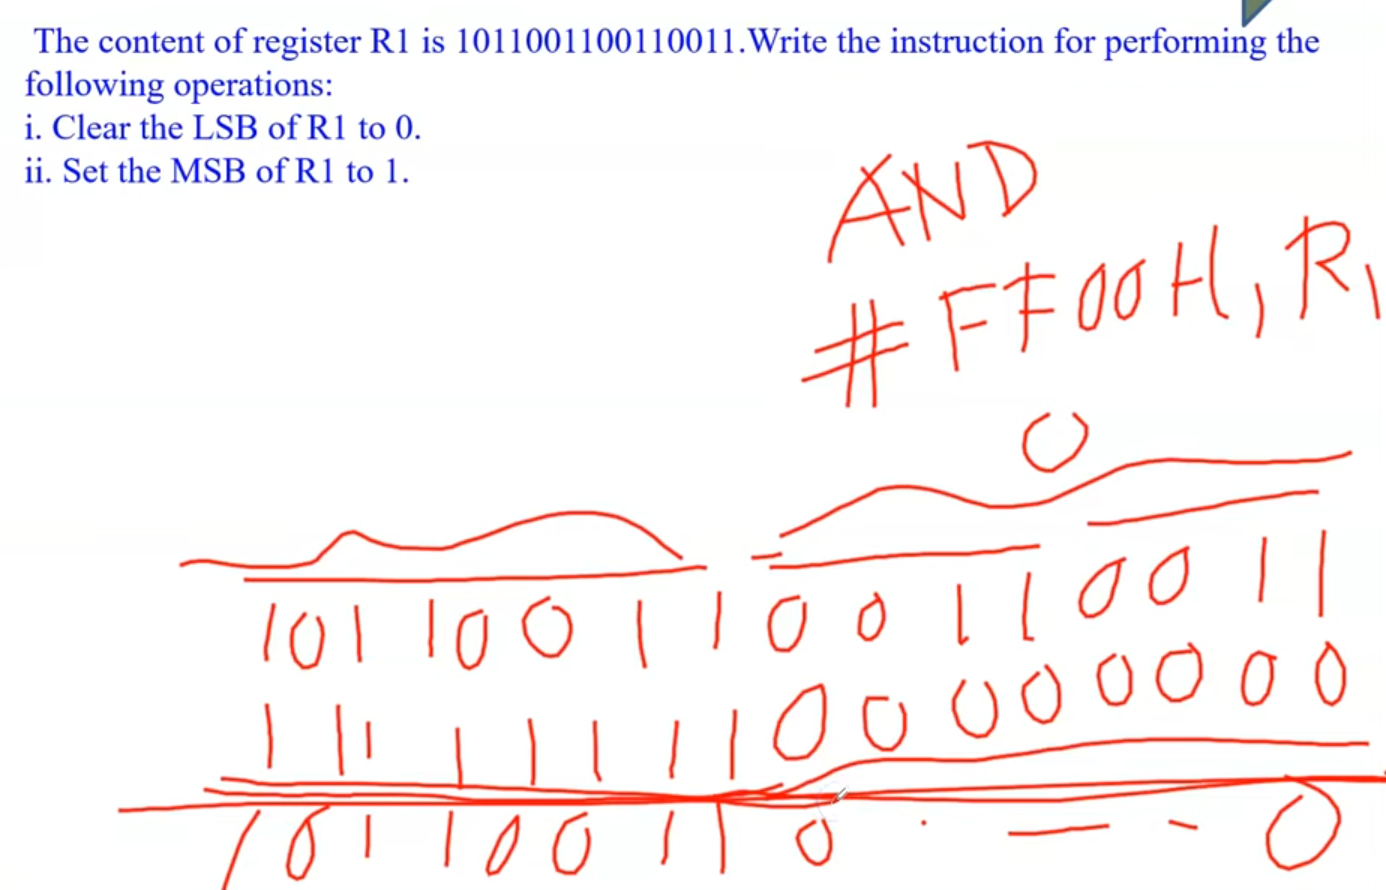 The content of register R1 is 1011001100110011.Write the instruction for performing the
following operations:
i. Clear the LSB of R1 to 0.
ii. Set the MSB of R1 to 1.
AND
#FF00H, R1
0
1011001100110011
1111111100000000
101100110 . — - 0